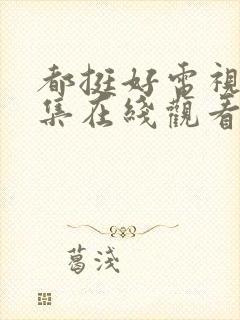 都挺好電視
集在綫觀看
葛淺